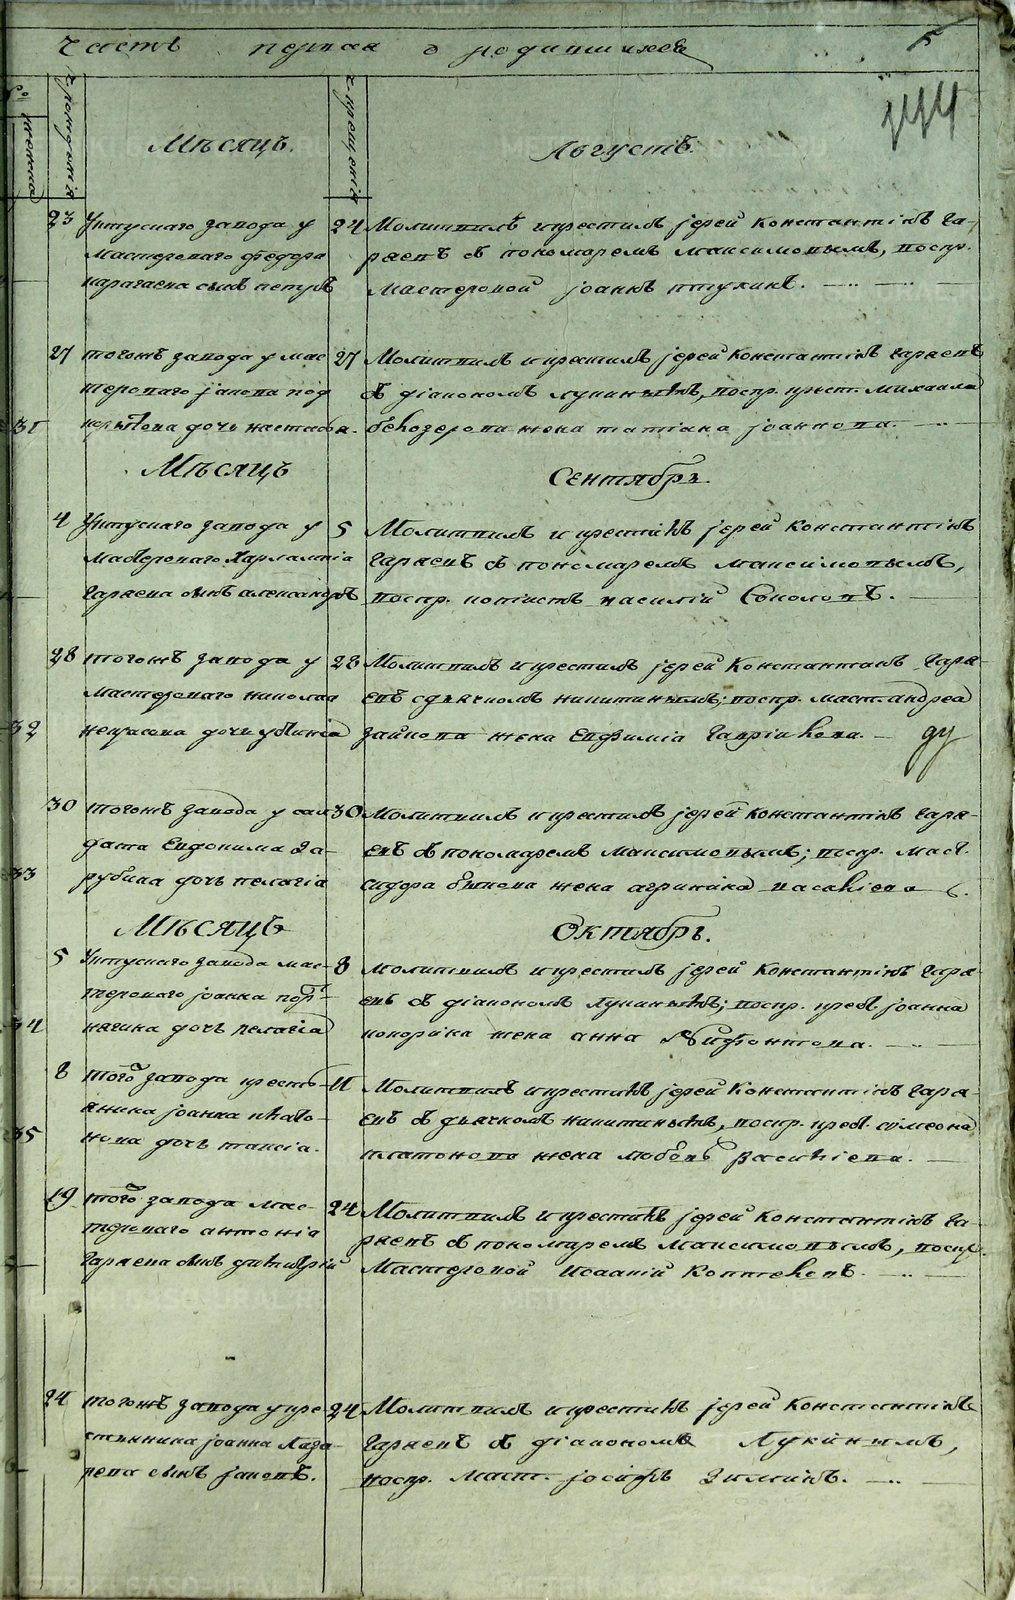 Часть первая о родившихся
5
№
женска
Ч. рожденія
Ч. крещенія
Мѣсяцъ.
Августъ.
23 Уктускаго завода у
мастероваго Феодора
Карагаева сынъ петръ
24 Молитвилъ и крестилъ јерей Константінъ Га-
ряевъ съ пономаремъ Максимовымъ, воспр.
мастеровой јоаннъ птухинъ.
27 тогожъ завода у мас
тероваго јакова под
31 дочь настасья.
27 Молитвилъ и крестилъ јерей Константінъ Гаряевъ
съ діакономъ Лукинымъ, воспр. крест. Михаила
бѣлозерова жена татіана јоаннова.
Мѣсяцъ
Сентябрь.
4 Уктускаго завода у
мастероваго Харлампіа
Гаряева сынъ александръ
5 Молитвилъ и крестилъ јерей Константінъ
Гаряевъ съ пономаремъ Максимовымъ,
воспр. копіистъ василій Соколовъ.
28 тогожъ завода у
мастероваго николая
32 некрасова дочь устинія
28 Молитвилъ и крестилъ јерей Константинъ Гаря-
евъ с дьячкомъ никитинымъ; воспр. маст. андреа
зайкова жена Евфиміа Гавріилова.
30 тогожъ завода у сол
дата Евдокима За-
33 рубина дочь пелагіа
30 Молитвилъ и крестилъ јерей Константінъ Гаря-
евъ съ пономаремъ Максимовымъ; воспр. маст.
сидора быкова жена агрипина васильева
Мѣсяцъ
Октябрь.
5 Уктускаго завода мас-
тероваго јоанна
34 дочь пелагіа
8 Молитвилъ и крестилъ јерей Константінъ Гаря-
евъ съ діакономъ Лукинымъ; воспр. крест. јоанна
кокорина жена анна Ксифонтова.
8 того завода кресть-
янина јоанна
35 дочь таисіа.
11 Молитвилъ и крестилъ јерей Константінъ Гаря-
евъ съ дьячкомъ никитинымъ, воспр. крест. сѵмеона
платонова жена любовь Васильева.
19 того завода мас-
тероваго антоніа
Гаряева сынъ димитрій
24 Молитвилъ и крестилъ јерей Константінъ Га-
ряевъ съ пономаремъ Максимовымъ, воспр.
Мастеровой Исаакій Коптеловъ.
24 тогожъ завода у кре-
стьянина јоанна Лаза-
рева сынъ јаковъ.
24 Молитвилъ и крестилъ јерей Константінъ
Гаряевъ съ діакономъ Лукинымъ,
воспр. маст. јосифъ Зиминъ.